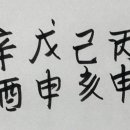 丙申
己亥
戊申
辛酉